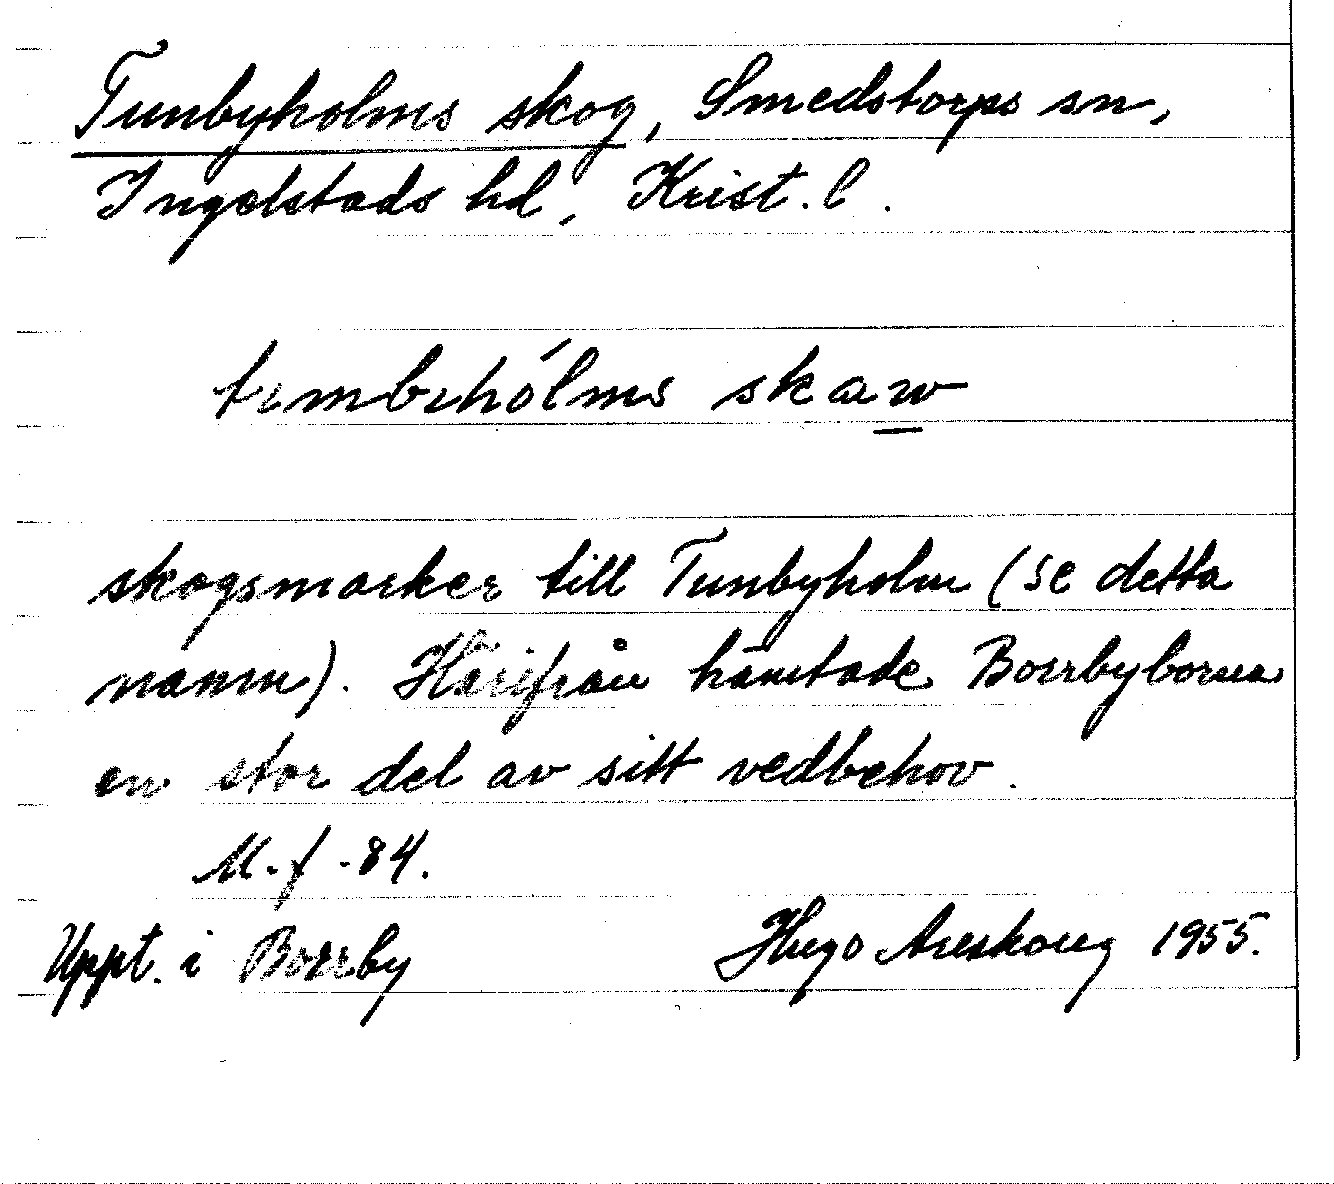 Tunbyholms skog, Smedstorps sn,
Ingelstads hd, Krist. l.
skaw
skogsmarker till Tunbyholm (se detta
namn). Härifrån hämtade Borrbyborna
en stor del av sitt vedbehov.
M.f -84.
Uppt. i Borrby Hugo Areskoug 1955.